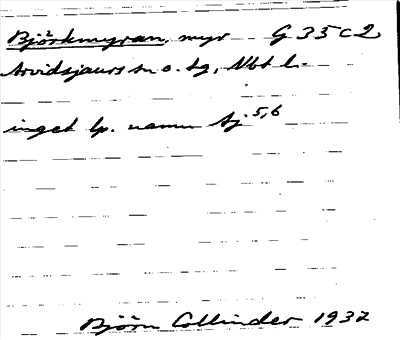 Bjö²rkmyran, myr G 35 c 2
Arvidsjaurs sn o. tg, Nbt l.
inget lp. namn Aj. 5,6
Björn Collinder 1932